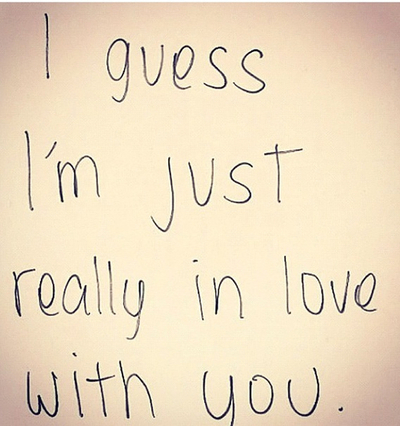 I guess
I'm just
really in love
with you.